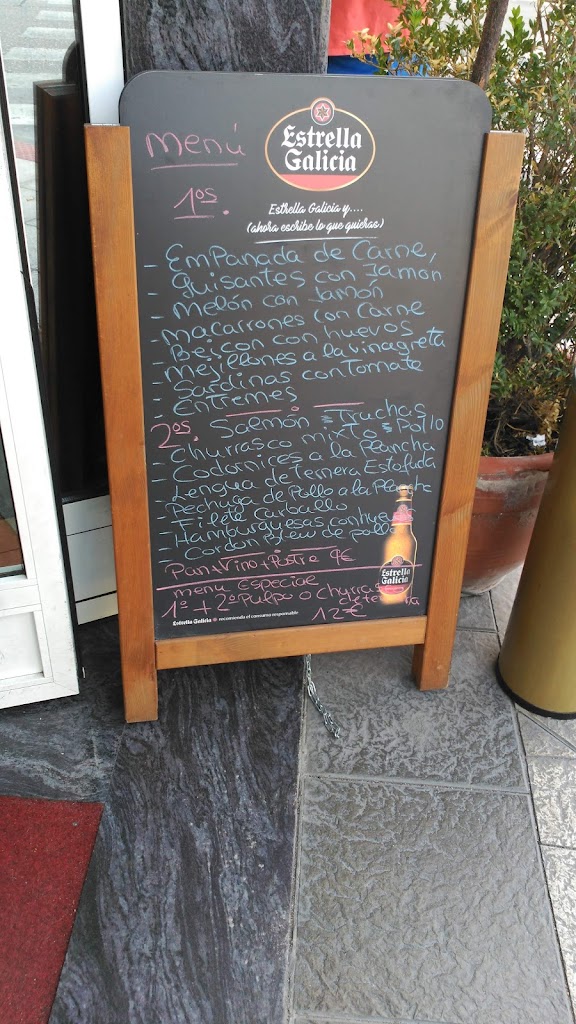 Menú
Estrella
Galicia
1os.
Estrella Galicia y....
(ahora escribe lo que quieras)
- EmPanada de Carne,
- guisantes con Jamon
- Melón con Jamón
- macarrones con Carne
- Beicon con huevos
- Mejillones a la vinagreta
- Sardinas con Tomate
- Entremes
2os. Salmón Truchas
- Churrasco mixto Pollo
- Codornices a la Plancha
- Lengua de Ternera Estofada
- Pechuga de Pollo a la Plancha
- Filete Carballo
- Hamburguesas con huevos
- Cordon Bleu de pollo
Pan+Vino+Postre 9€
menu especial
1º + 2º Pulpo o Churrasco
de ternera
12€
Estrella
Galicia
Estrella Galicia recomienda el consumo responsable